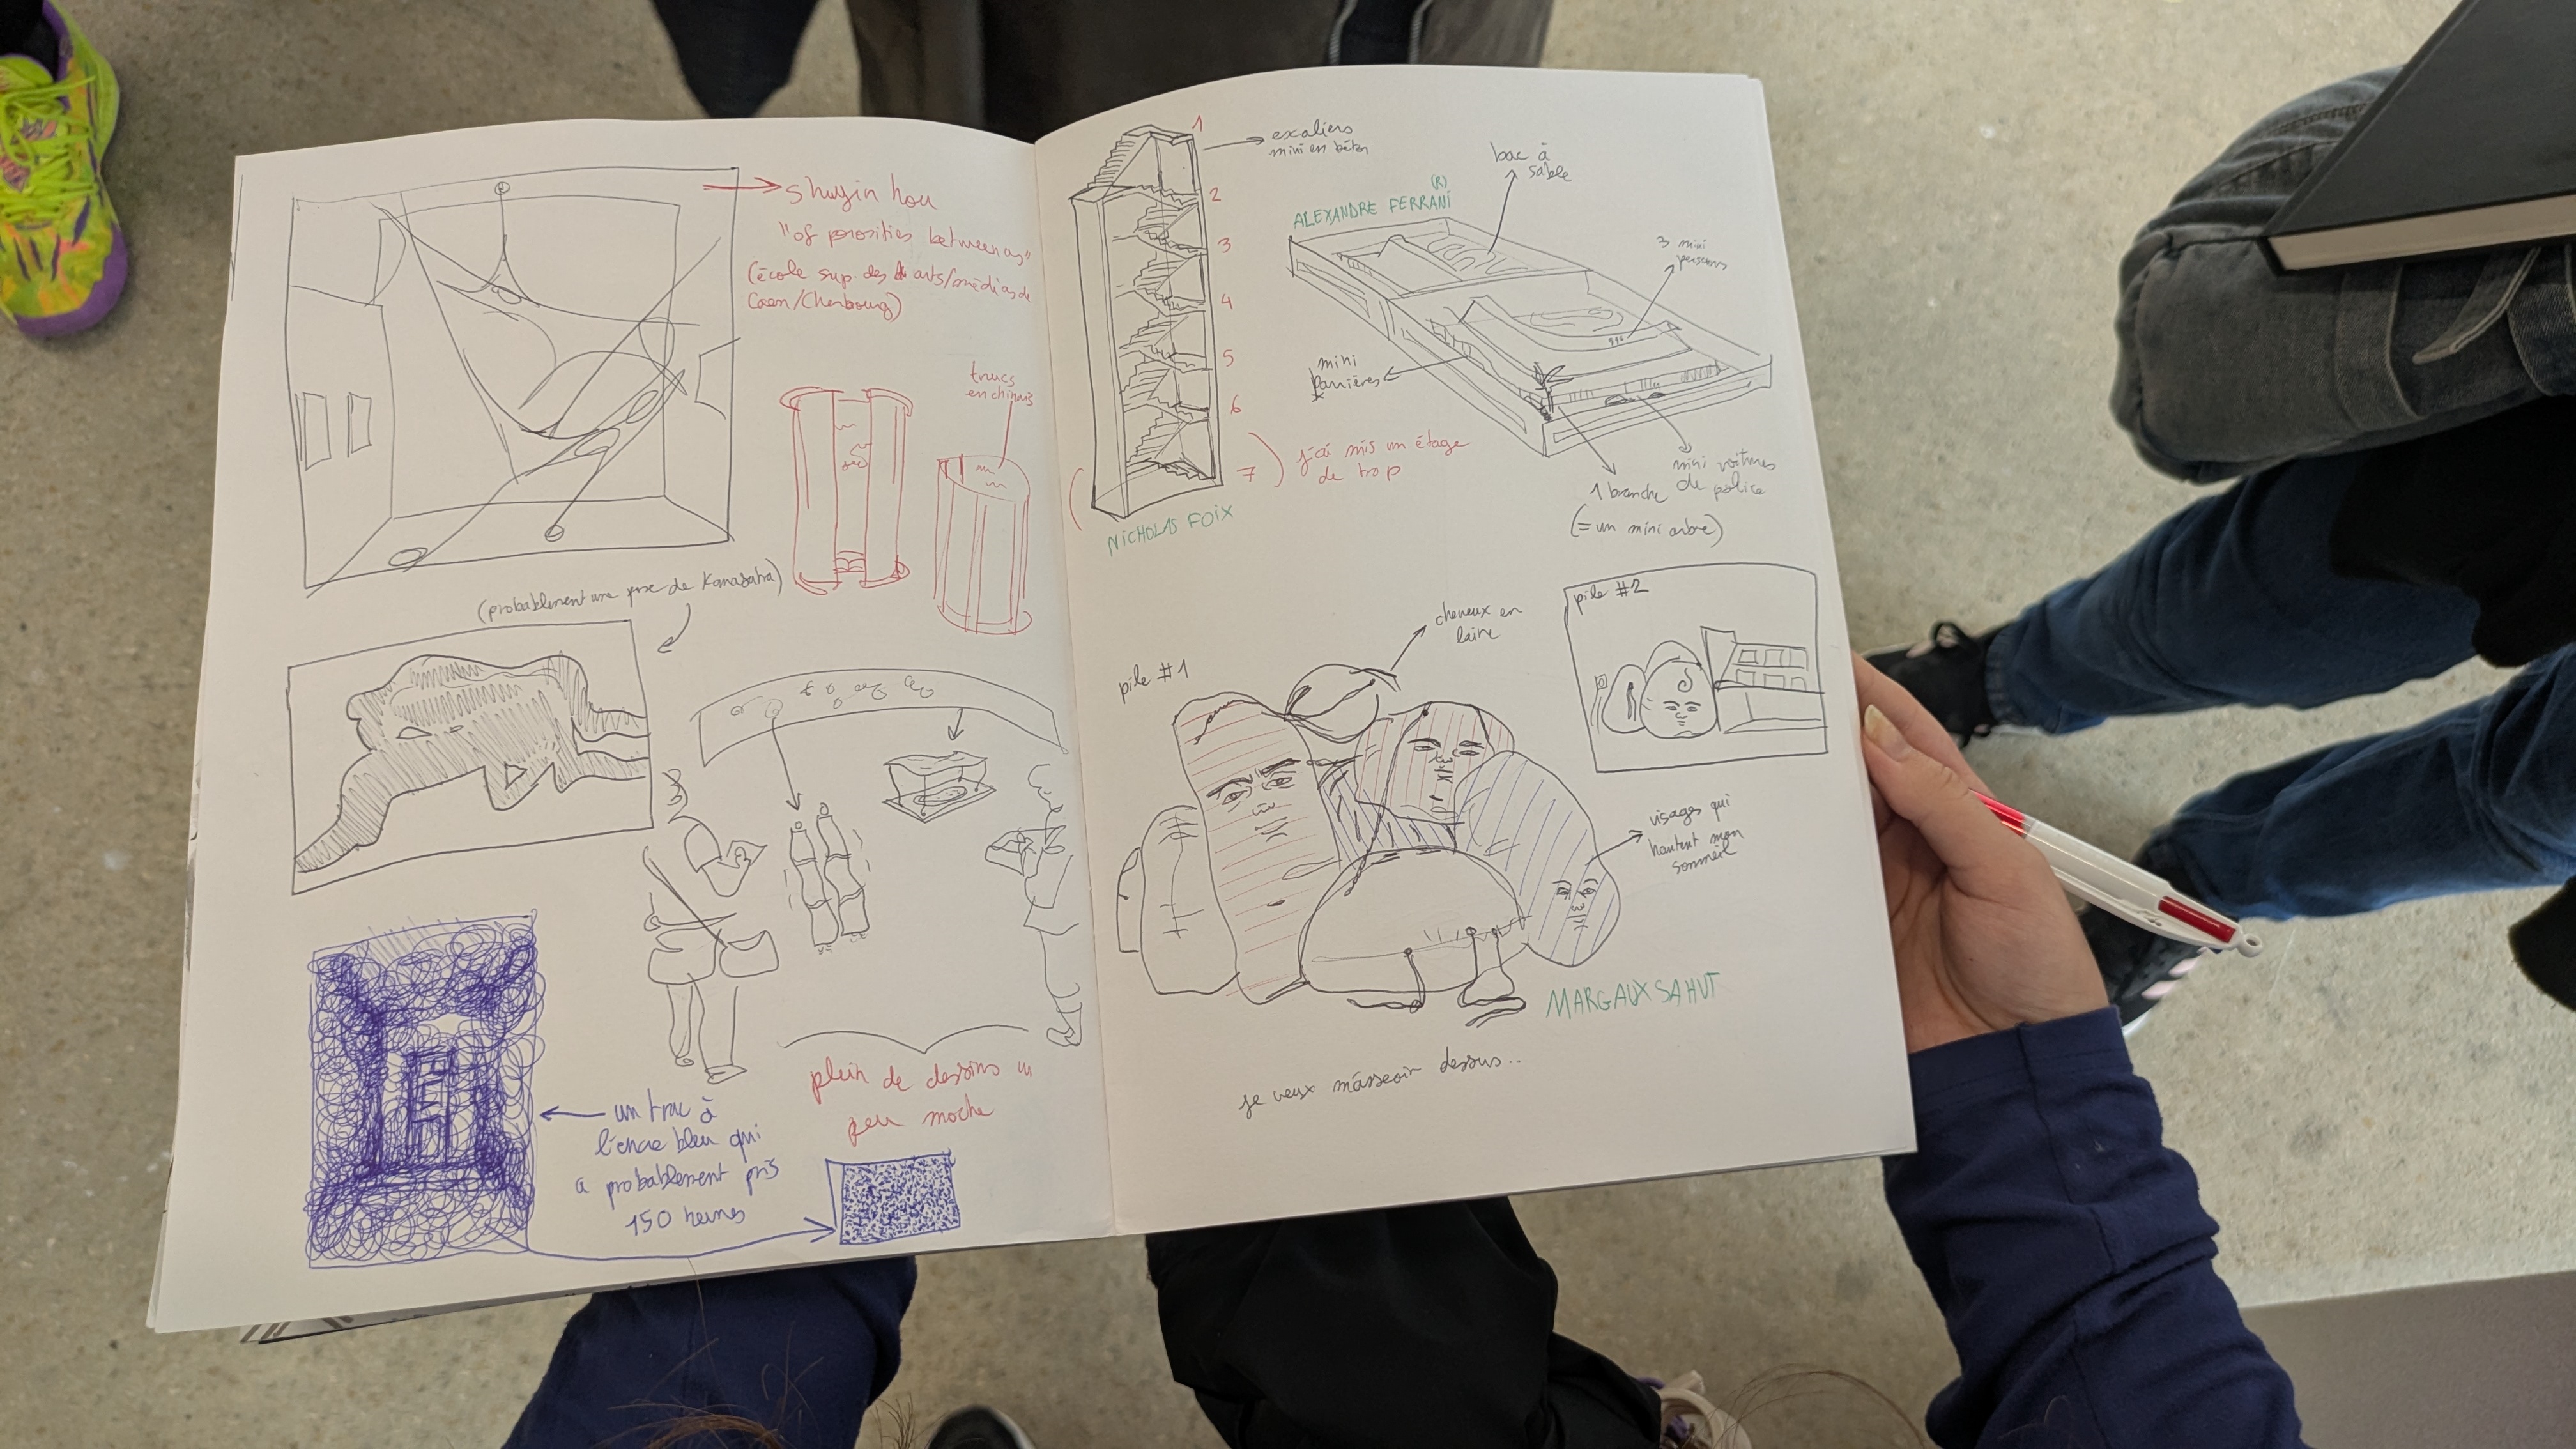 shuyin hou
"of porosities between us"
(école sup. des arts/médias de
Caen/Cherbourg)
trucs
en chinois
(probablement une pose de Kamasutra)
plein de dessins un
peu moche
un truc à
l'encre bleu qui
a probablement pris
150 heures
1
2
3
4
5
6
7
escaliers
mini en béton
j'ai mis un étage
de trop
NICHOLAS FOIX
(R)
ALEXANDRE FERRANI
bac à
sable
3 mini
persons
mini
barrières
mini voitures
de police
1 branche
(= un mini arbre)
pile #1
cheveux en
laine
pile #2
visages qui
hantent mon
sommeil
MARGAUX SAHUT
je veux m'asseoir dessus..